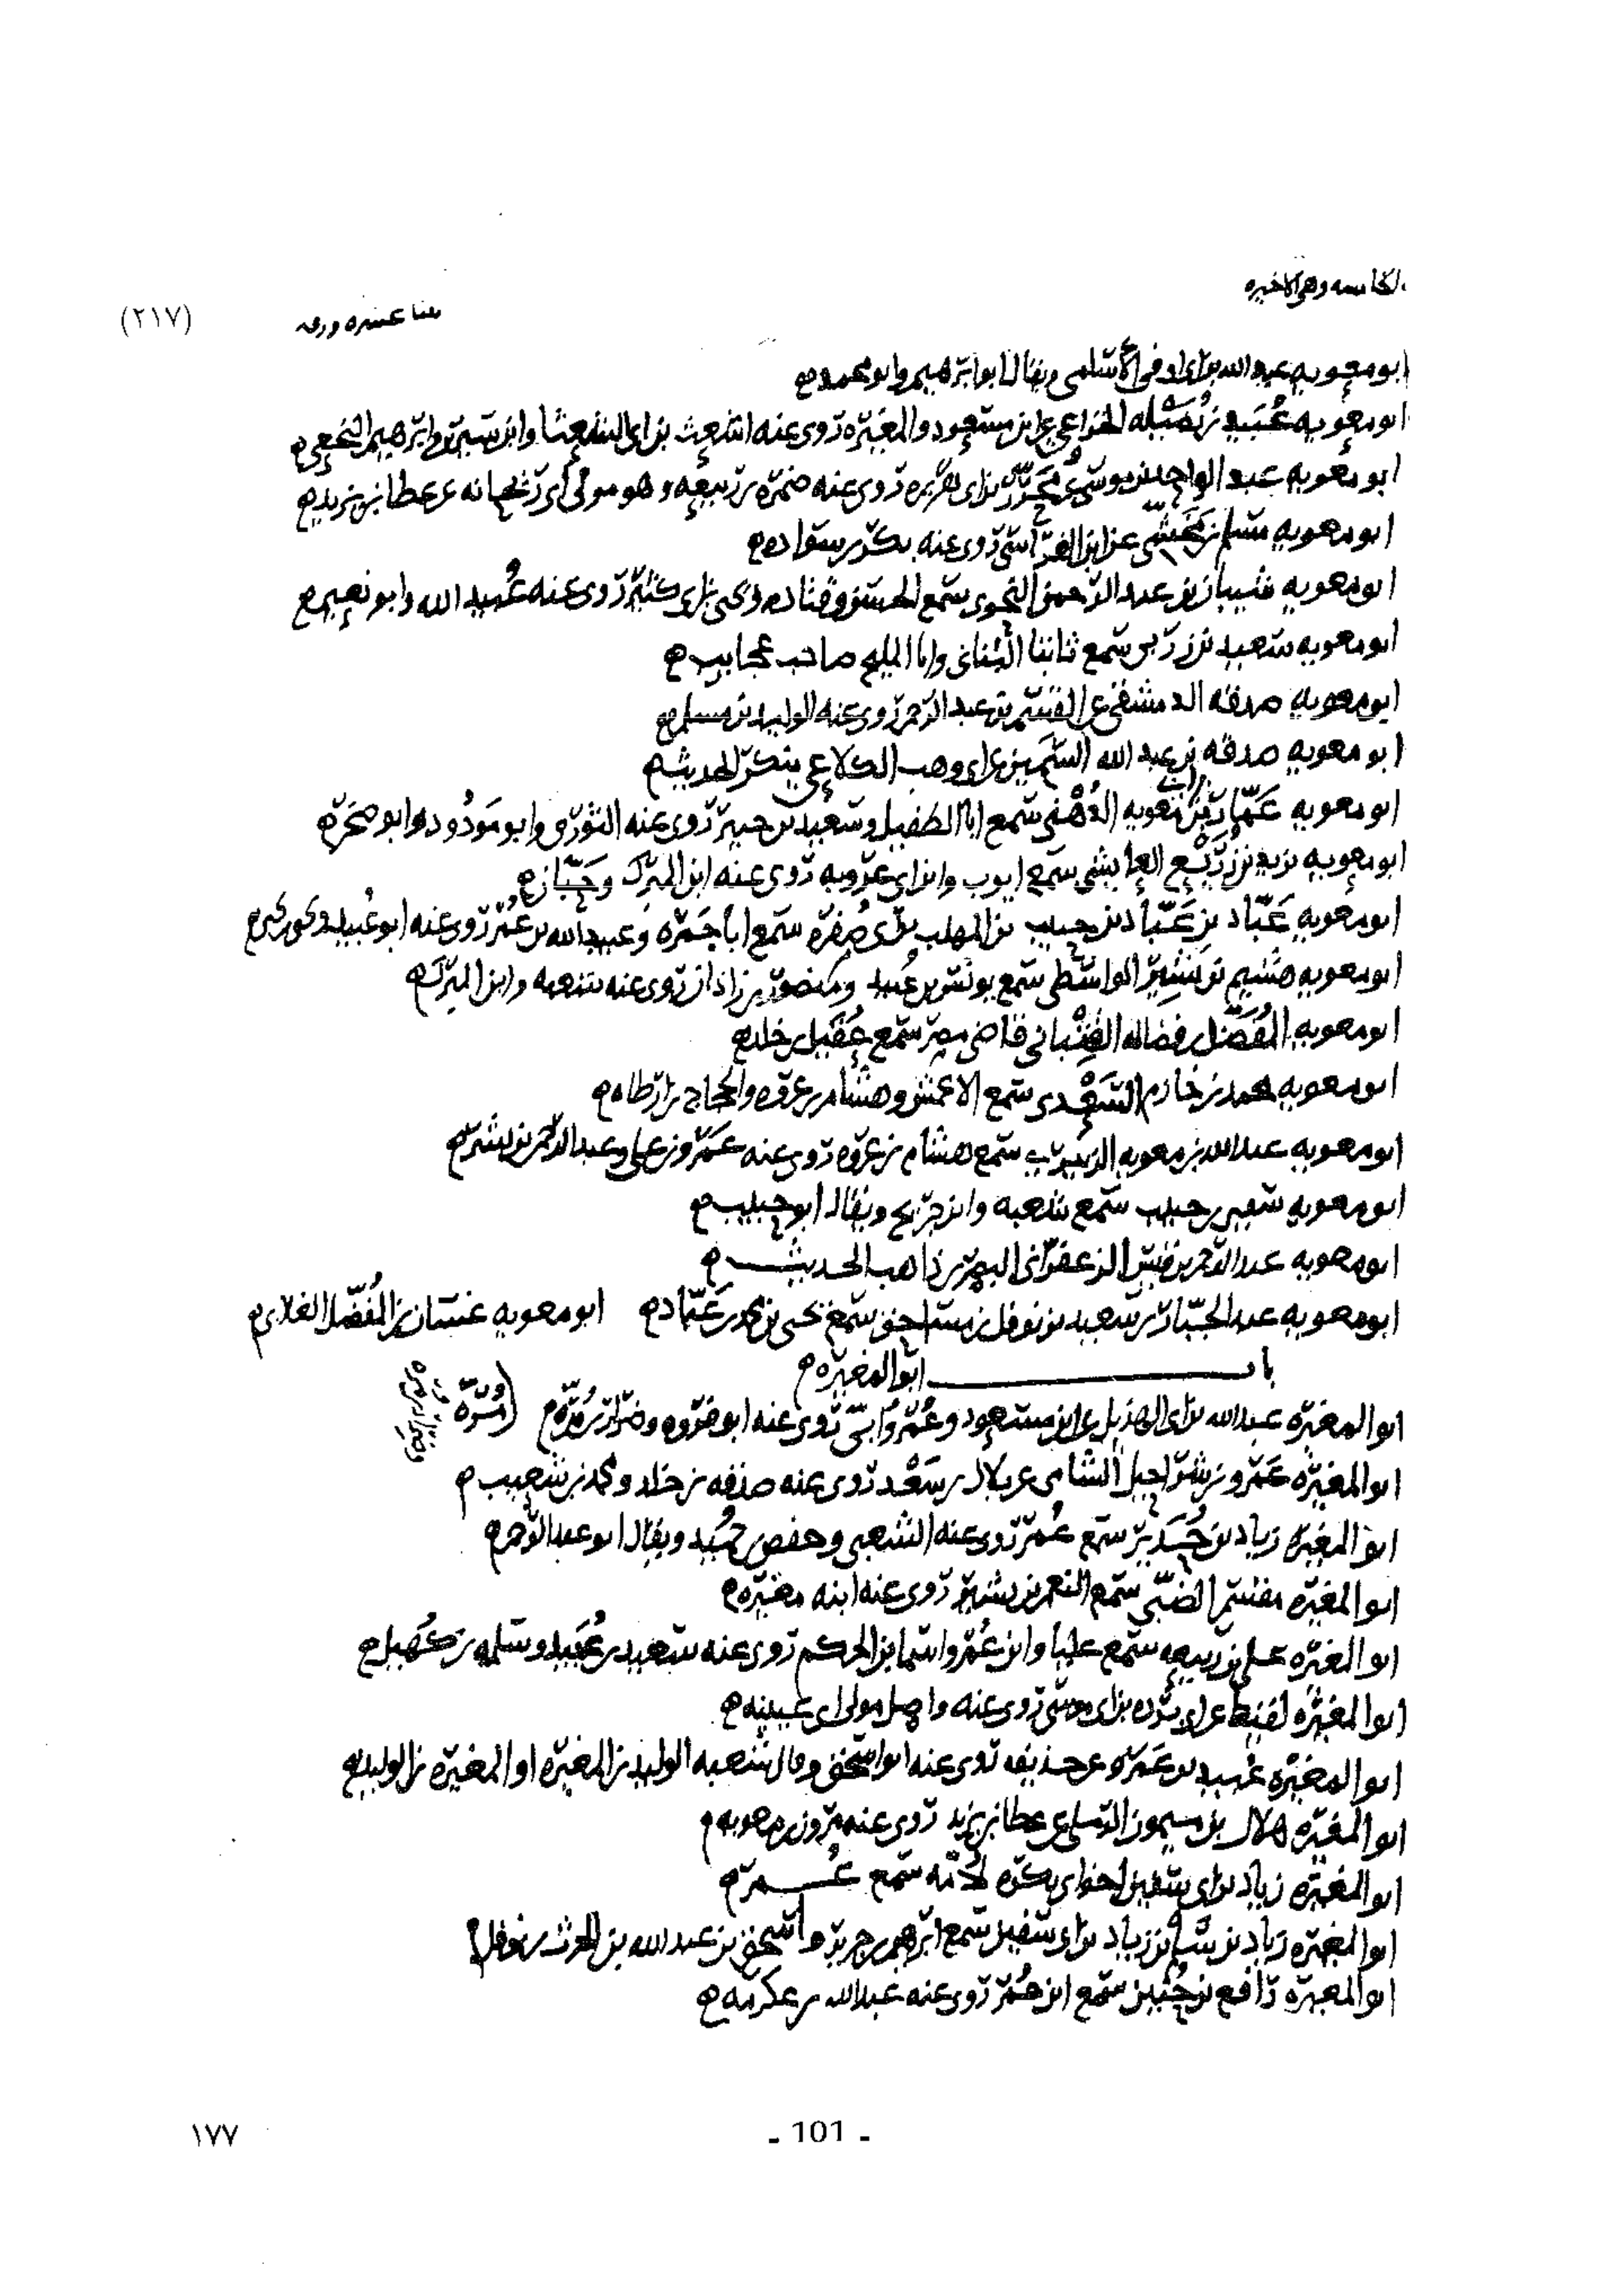 الخامسه وهي الاخيره
عشره ورقه
(٢١٧)
ابو معويه عبد الله بن ابي اوفى الأسلمي ويقال ابو ابرهيم وابو محمد
ابو معويه عُبَيد بن نُضَيْله الخزاعي عن ابن مسعود والمغيره روى عنه اشعث بن ابي الشعثا وابن سيرين وابرهيم النخعي
ابو معويه عبد الواحد بن موسى عن ابن مُحَيريز روى عنه ضمره بن ربيعه وهو مولى عن عطا بن يزيد
ابو معويه مسلم بن مَخْشِي عن ابن الفراسي روى عنه بكر بن سواده
ابو معويه شيبان بن عبد الرحمن النحوي سمع الحسن وقتاده ويحيى بن ابي كثير روى عنه عُبيد الله وابو نعيم
ابو معويه سعيد بن زربي سمع ثابتا البُناني وابا المليح صاحب عجايب
ابو معويه صدقه الدمشقي عن القسم بن عبد الرحمن روى عنه الوليد بن مسلم
ابو معويه صدقه بن عبد الله السَّمين عن ابي وهب الكلاعي ينكر الحديث
ابو معويه عَمّار بن معويه الدُهْني سمع ابا الطفيل وسعيد بن جبير روى عنه الثوري وابو مَوْدُود وابو صخره
ابو معويه يزيد بن زُرَيْع العايشي سمع ايوب وابن ابي عروبه روى عنه ابن المبرك وحَبّان
ابو معويه عَبّاد بن عَبّاد بن حبيب بن المهلب بن ابي صُفره سمع ابا جَمْره وعبيد الله بن عُمَر روى عنه ابو عُبيد
ابو معويه هشيم بن بَشِير الواسطي سمع يونس بن عُبيد ومنصور بن زاذان روى عنه شعبه وابن المبرك
ابو معويه المُفَضَّل بن فضاله القِتْباني قاضي مصر سمع عُقَيل بن خلد
ابو معويه محمد بن خازم السَّعْدي سمع الاعمش وهشام بن عروه والحجاج بن ارطاه
ابو معويه عبد الله بن معويه الزبيري سمع هشام بن عروه روى عنه عَمْرو بن علي وعبد الرحمن بن بشر
ابو معويه شعيب بن حبيب سمع شعبه وابن جريج ويقال ابو حبيب
ابو معويه عبد الرحمن بن قيس الزعفراني البصري ذاهب الحديث
ابو معويه عبد الجبّار بن سعيد بن نوفل بن مساحق سمع يحيى بن محمد بن عَبّاد ابو معويه غسان بن المُفَضَّل الغلابي
باب ابو المغيره
ابو المغيره عبد الله بن ابي الهذيل عن ابن مسعود وعُمَر وأُبَيّ روى عنه ابو فروه وضرار بن مُرّه
مُرّة
ابو المغيره عَمْرو بن شراحيل الشامي عن بلال بن سَعْد روى عنه صدقه بن خلد ومحمد بن شعيب
ابو المغيره زياد بن حُدَير سمع عُمر روى عنه الشعبي وحفص بن حُميد ويقال ابو عبد الرحمن
ابو المغيره مقسم الضّبّي سمع النعمن بن بشير روى عنه ابنه مغيره
ابو المغيره علي بن ربيعه سمع عليا وابن عُمَر واسما بن الحكم روى عنه سعيد بن عُبَيد وسلمه بن كُهَيل
ابو المغيره لقيط عن ابي برده بن ابي موسى روى عنه واصل مولى ابي عيينه
ابو المغيره عُبيد بن عَمْرو عن حذيفه روى عنه ابو اسحق وقال شعبه الوليد بن المغيره او المغيره بن الوليد
ابو المغيره هلال بن ميمون الرملي عن عطا بن يزيد روى عنه مرون بن معويه
ابو المغيره زياد بن ابي سفين اخو ابي بكره لأمّه سمع عُمر
ابو المغيره زياد بن سلم بن زياد بن ابي سفين سمع ابرهيم بن جرير واسحق بن عبد الله بن الحرث بن نوفل
ابو المغيره رافع بن حُنَين سمع ابن عُمَر روى عنه عبد الله بن عكرمه
١٧٧
- 101 -